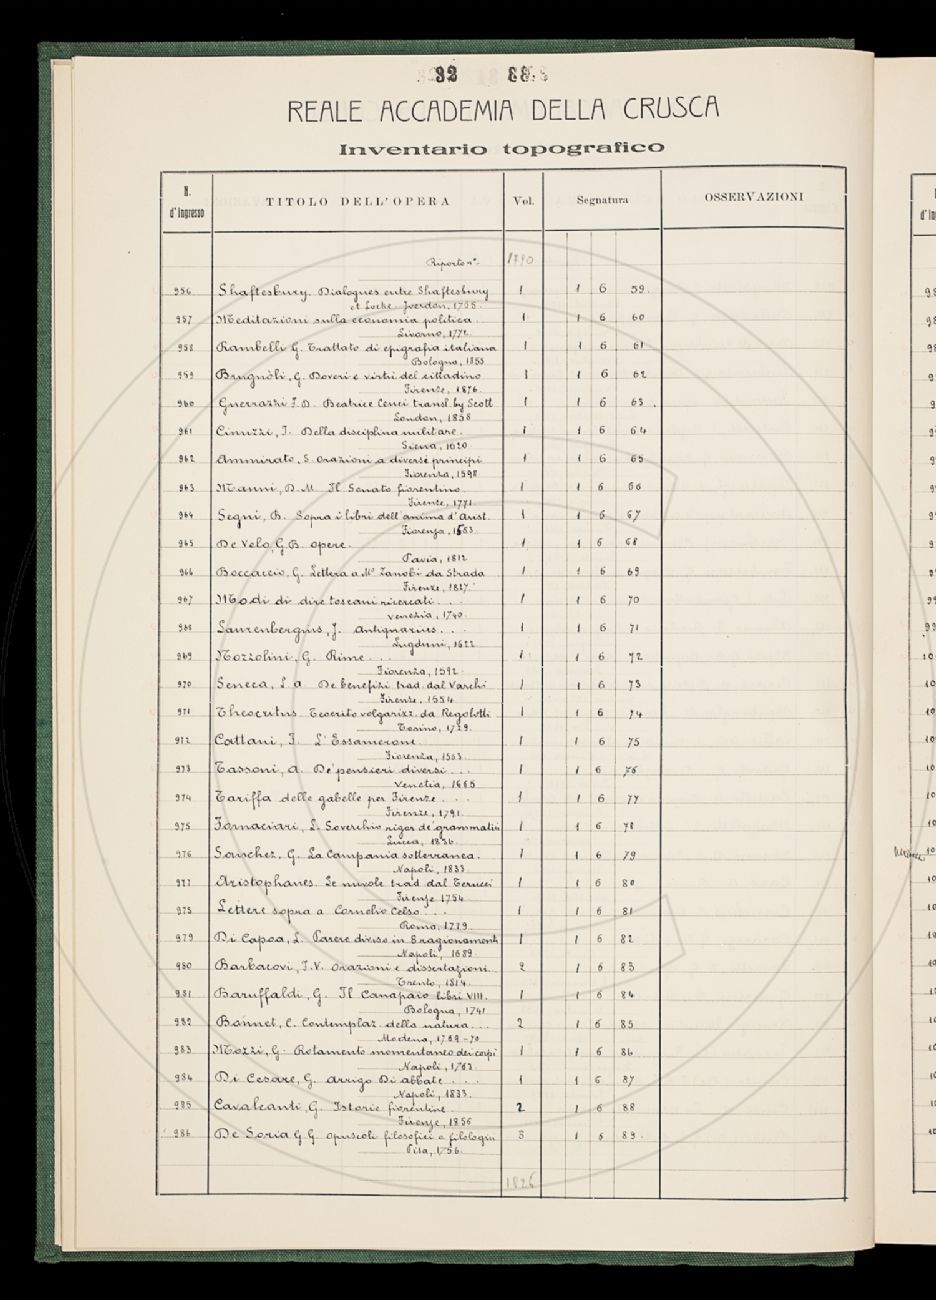 32
REALE ACCADEMIA DELLA CRUSCA
Inventario topografico
N. d'Ingresso TITOLO DELL'OPERA Vol. Segnatura OSSERVAZIONI
Riporto nº. 1790
956 Shaftesbury. Dialogues entre Shaftesbury 1 1 6 59.
et Locke. Yverdon,
957 Meditazioni sulla economia politica 1 1 6 60
Livorno, 1772
958 Rambelli G. Trattato di epigrafia italiana 1 1 6 61
Bologna, 1853
959 Brugnòli, G. Doveri e virtù del cittadino 1 1 6 62
Firenze, 1876
960 Guerrazzi F.D. Beatrice Cenci transl. by Scott 1 1 6 63.
London, 1858
961 Cinuzzi, I. Della disciplina militare. 1 1 6 64
Siena, 1620
962 Ammirato, S. orazioni a diversi principi 1 1 6 65
Fiorenza, 1598
963 Manni, D.M. Il Senato fiorentino 1 1 6 66
Firenze, 1771
964 Segni, B. Sopra i libri dell'anima d'Arist. 1 1 6 67
Fiorenza, 1583
965 De Velo, G.B. opere. 1 1 6 68
Pavia, 1812
966 Boccaccio, G. Lettera a Mº Zanobi da Strada 1 1 6 69
Firenze, 1827
967 Modi di dire toscani ricercati . . . 1 1 6 70
Venezia, 1740
968 Laurenbergius, J. Antiquarius . . . 1 1 6 71
Lugduni, 1622
969 Mozzolini, G. Rime . . . 1 1 6 72
Fiorenza, 1592
970 Seneca, L. a. De benefizi trad. dal Varchi 1 1 6 73
Firenze, 1554
971 Theocritus. Teocrito volgarizz. da Regolotti 1 1 6 74
Torino, 1729
972 Cattani, F. L'Essamerone. 1 1 6 75
Fiorenza, 1563
973 Tassoni, A. De' pensieri diversi . . . 1 1 6 76
Venetia, 1665
974 Tariffa delle gabelle per Firenze . . . 1 1 6 77
Firenze, 1791
975 Fornaciari, L. Soverchio rigor de' grammatici 1 1 6 78
Lucca, 1836
976 Sanchez, G. La Campania sotterranea. 1 1 6 79
Napoli, 1833
977 Aristophanes. Le nuvole trad. dal Terucci 1 1 6 80
Firenze 1754
978 Lettere sopra a Cornelio Celso . . . 1 1 6 81
Roma, 1779
979 Di Capoa, L. Parere diviso in 8 ragionamenti 1 1 6 82
Napoli, 1689
980 Barbacovi, F.V. Orazioni e dissertazioni. 2 1 6 83
Trento, 1814
981 Baruffaldi, G. Il Canapaio libri VIII. 1 1 6 84
Bologna, 1741
982 Bonnet, C. Contemplaz. della natura . . . 2 1 6 85
Modena, 1769-70
983 Mozzi, G. Rotamento momentaneo dei corpi 1 1 6 86
Napoli,
984 Di Cesare, G. Arrigo Di abbate . . . 1 1 6 87
Napoli, 1833
985 Cavalcanti, G. Istorie fiorentine. 2 1 6 88
Firenze, 1856
986 De Soria G.G. opuscoli filosofici e filologici 3 1 6 89.
Pisa, 1756
1826